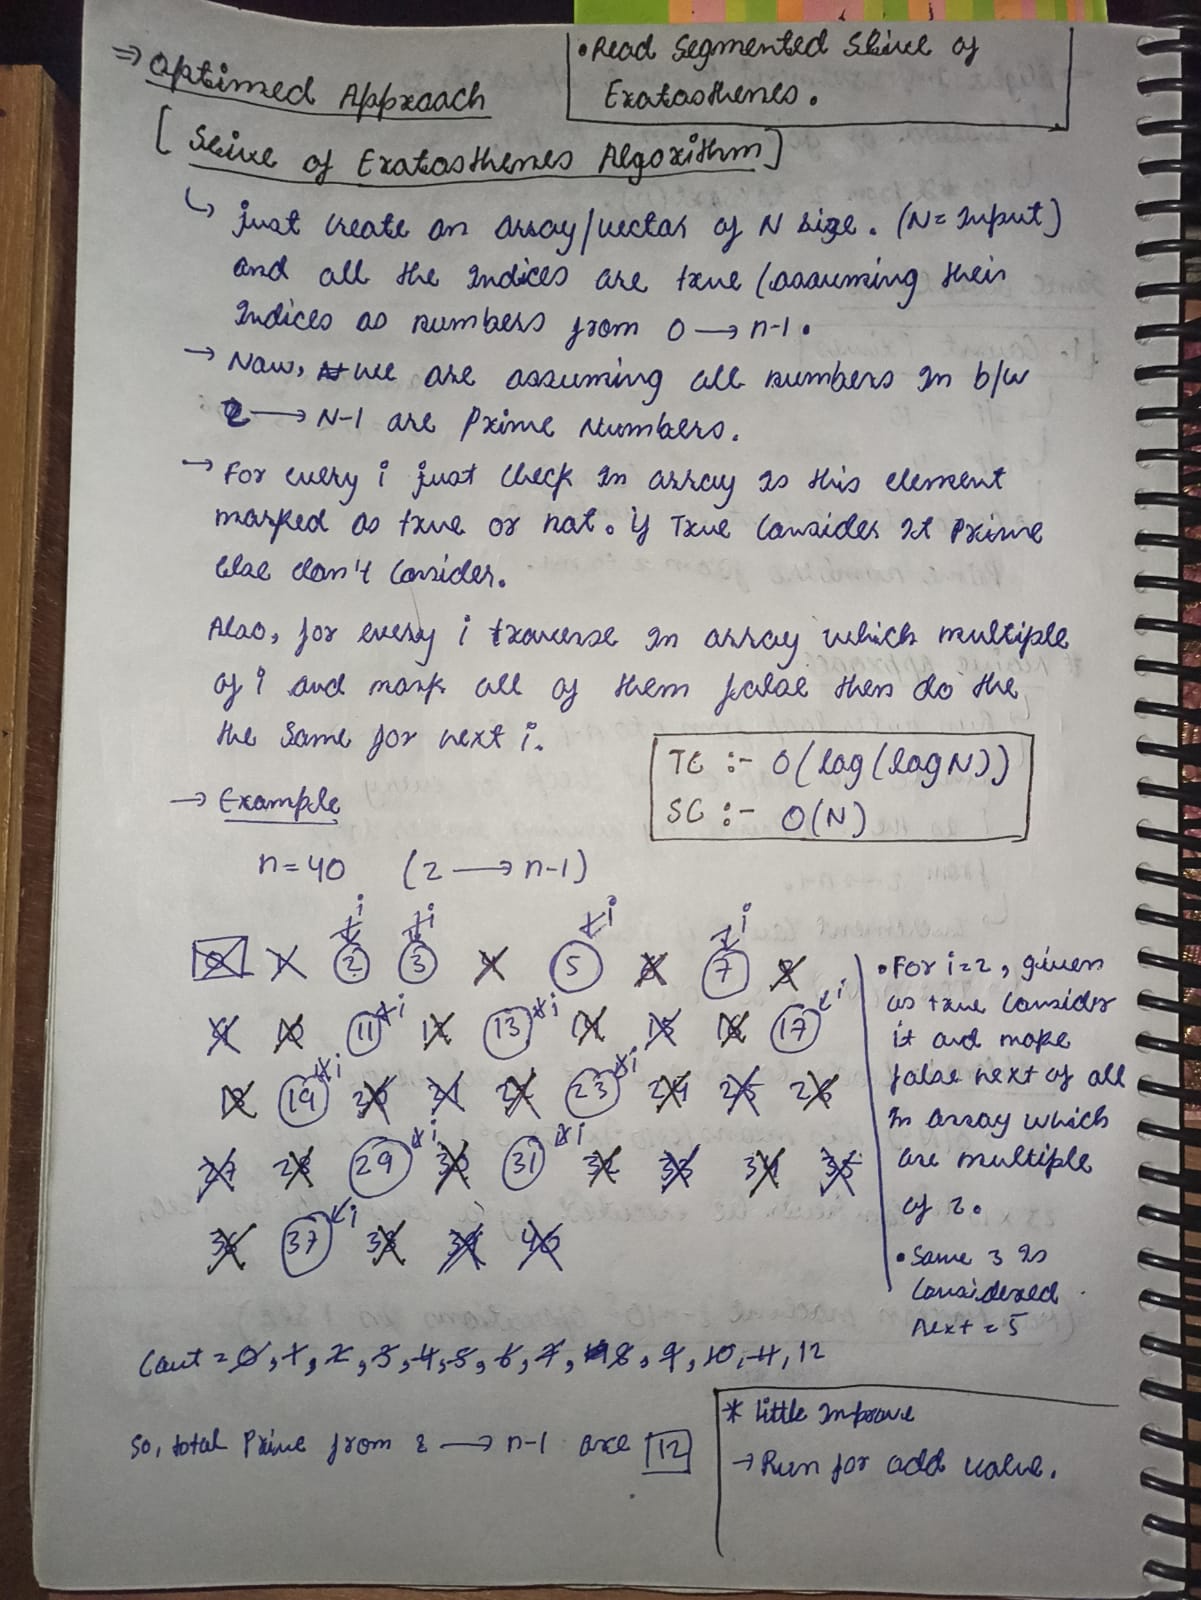 ⇒ Optimed Approach
• Read Segmented Seive of
Eratosthenes.
[ Seive of Eratosthenes Algorithm ]
↳ just create an array/vector of N size. (N = Input)
and all the indices are true (assuming their
Indices as numbers from 0 → n-1.
→ Now, we are assuming all numbers in b/w
2 → N-1 are Prime Numbers.
→ For every i just check in array is this element
marked as true or not. if True consider it Prime
else don't consider.
Also, for every i traverse in array which multiple
of i and mark all of them false then do the
the same for next i.
TC :- O(log(logN))
SC :- O(N)
→ Example
n = 40 (2 → n-1)
i i i i
0 1 2 3 4 5 6 7 8
9 10 11 i 12 13 i 14 15 16 17 i
18 19 i 20 21 22 23 i 24 25 26
27 28 29 i 30 31 i 32 33 34 35
36 37 i 38 39 40
• For i=2, given
as true consider
it and make
false next of all
in array which
are multiple
of 2.
• Same 3 is
considered
next = 5
Cout = 0, 1, 2, 3, 4, 5, 6, 7, 8, 9, 10, 11, 12
So, total Prime from 2 → n-1 are 12
* little Improve
→ Run for odd value.